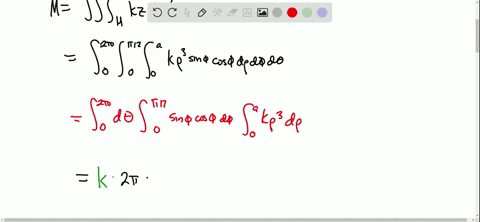 M= ∫∫∫_H kz
= ∫_0^{2π} ∫_0^{π/2} ∫_0^a kρ³ sinφ cosφ dρ dφ dθ
= ∫_0^{2π} dθ ∫_0^{π/2} sinφ cosφ dφ ∫_0^a kρ³ dρ
= k · 2π ·